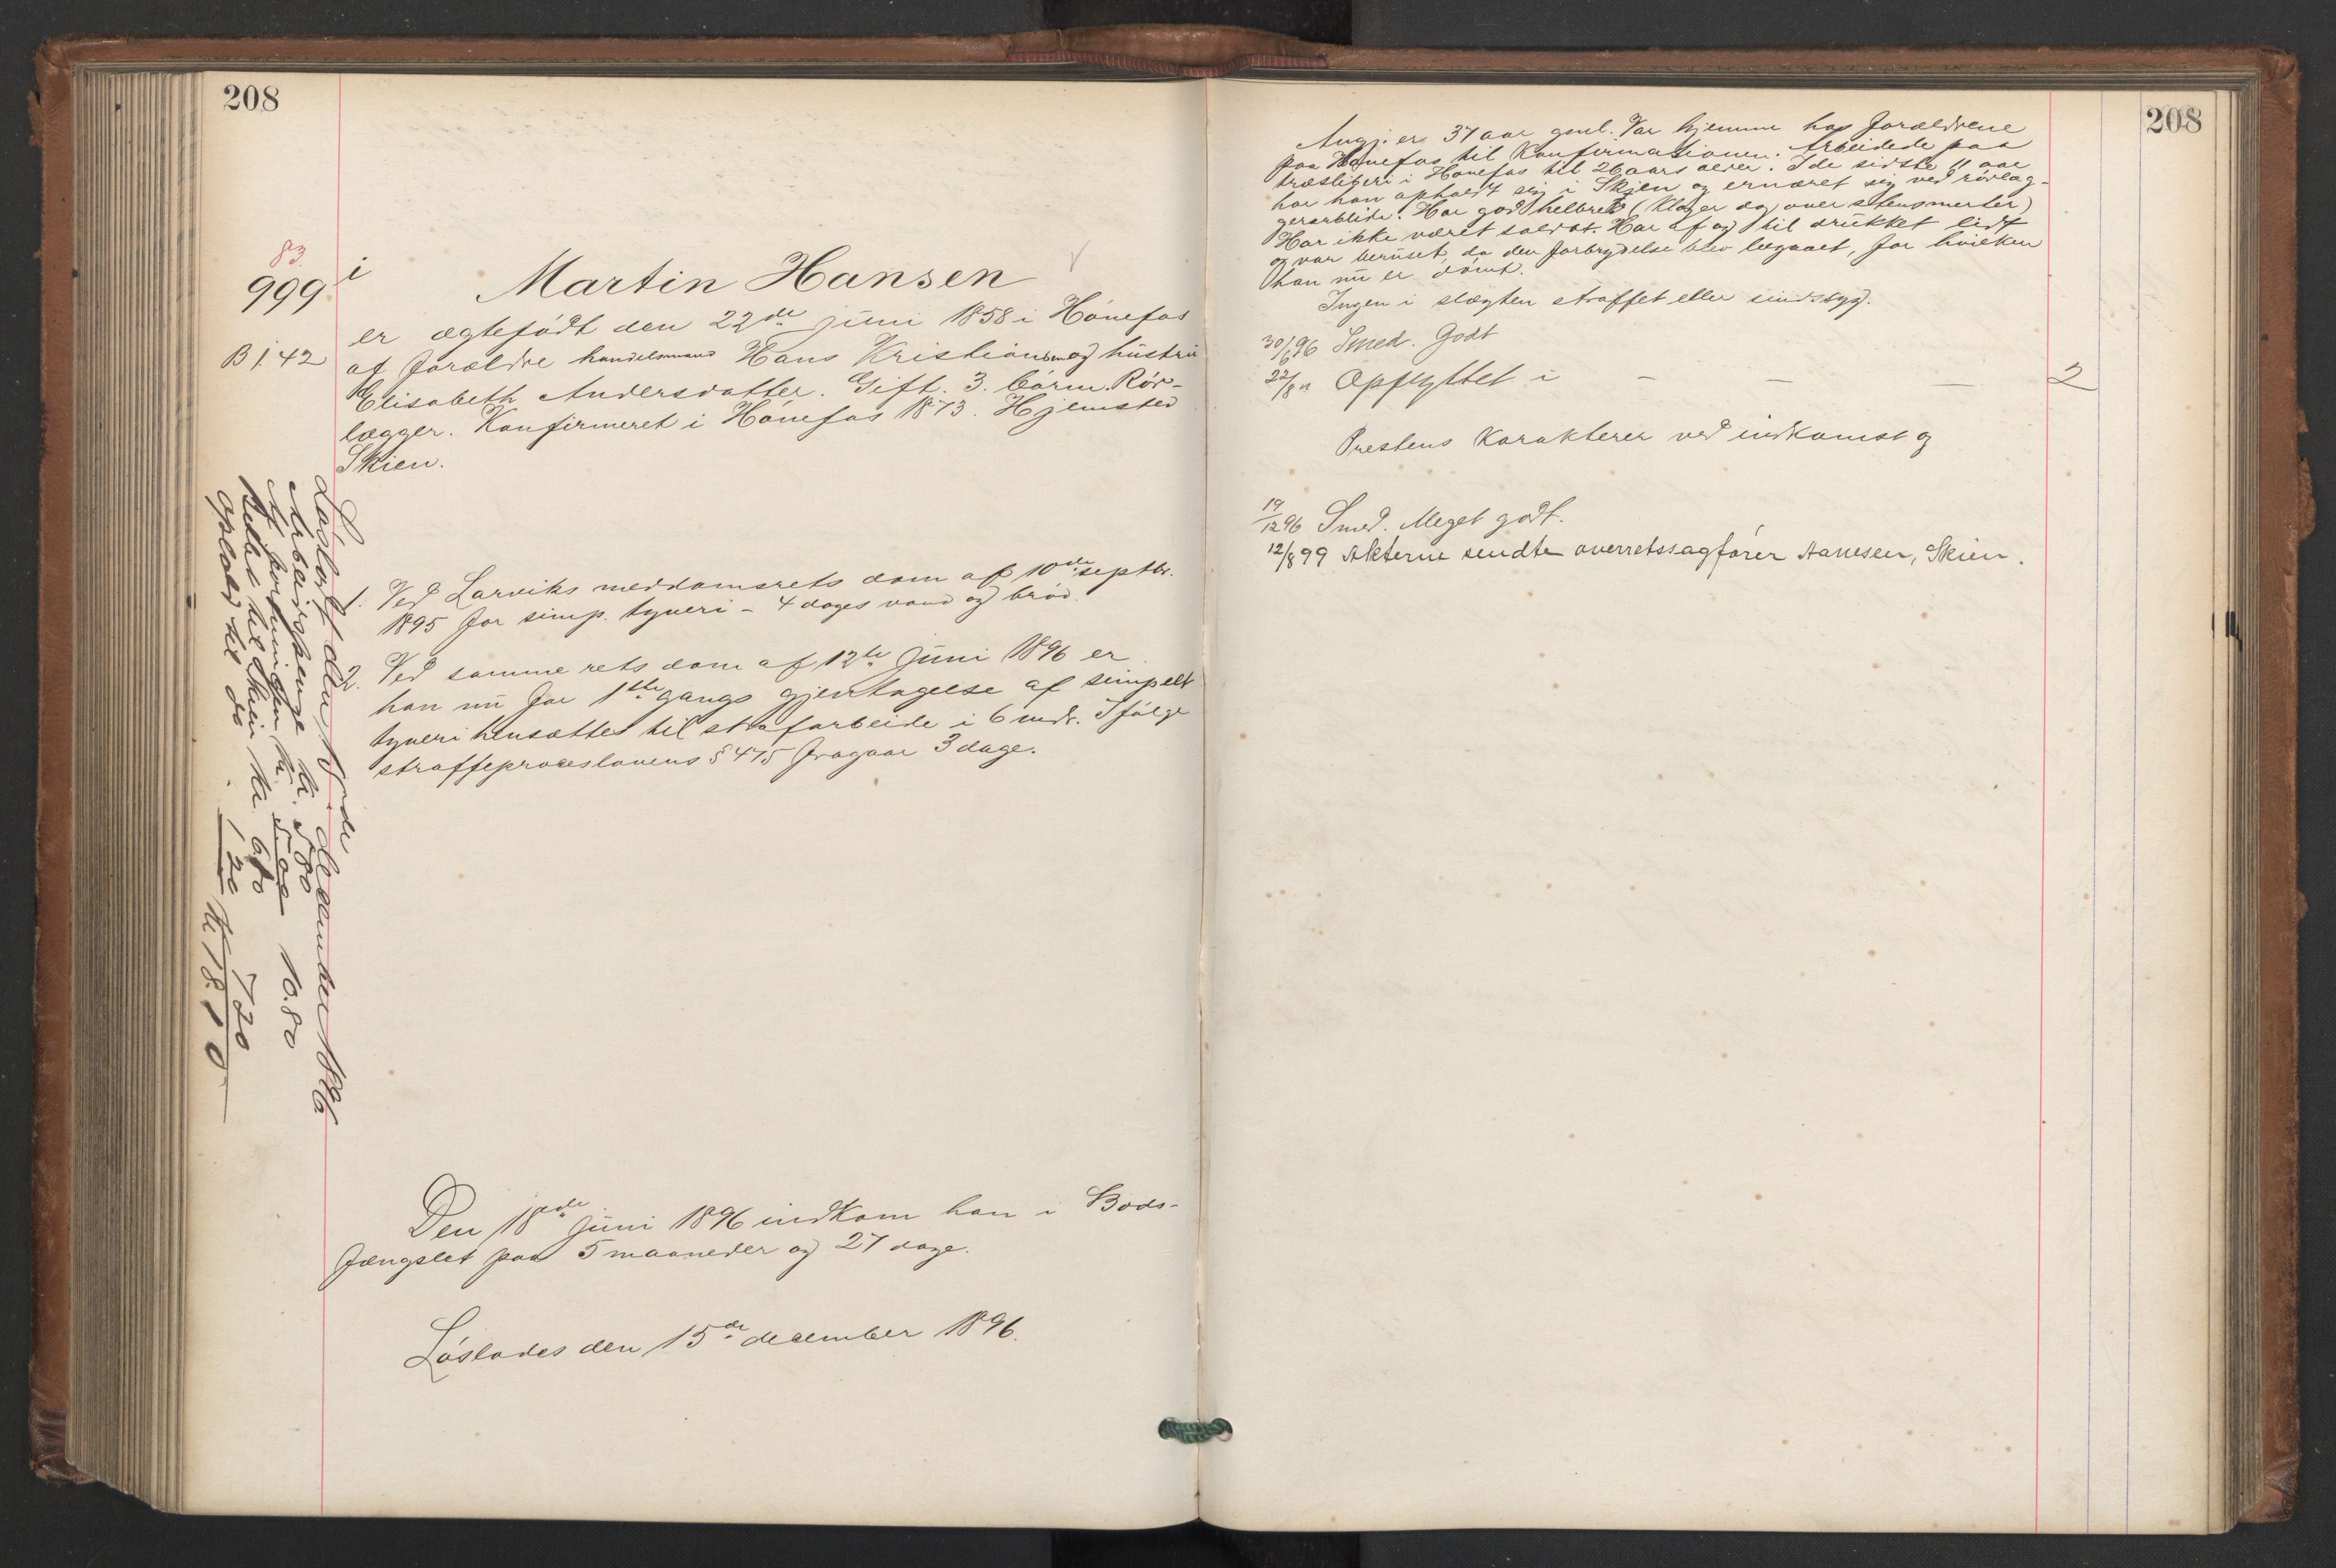 208
83
999 i
Martin Hansen
B 1.42
er ægtefödt den 22de juni 1858 i Hönefos
af forældre handelsmand Hans Kristiansen og hustru
Elisabeth Andersdatter. Gift. 3. börn. Rör-
lægger. Konfirmeret i Hönefos 1873. Hjemsted
Skien.
1. Ved Larviks meddomsrets dom af 10de septbr.
1895 for simp. tyveri - 4 dages vand og bröd.
2. Ved samme rets dom af 12te juni 1896 er
han nu for 1ste gangs gjentagelse af simpelt
tyveri hensættes til strafarbeide i 6 mdr. Ifölge
straffeproceslovens § 475 fragaar 3 dage.
Lösladt den 15de december 1896
Arbeidspenge kr. 5.80
Af forening kr. 5.00 10.80
Billet til Skien kr. 6.00
Ophold til do. 1.20 7.20
kr. 18.00
Den 18de juni 1896 indkom han i Bods-
fængslet paa 5 maaneder og 27 dage.
Löslades den 15de december 1896.
208
Angj. er 37 aar gml. Var hjemme hos forældrene
paa Hönefos til Konfirmationen. Arbeidede paa
træsliberi i Hönefos til 26 aars alder. I de sidste 11 aar
har han opholdt sig i Skien og ernæret sig ved rörlæg-
gerarbeide. Har god helbred (klager dog over stensmerter)
Har ikke været soldat. Har af og til drukket lidt
og var beruset, da den forbrydelse blev begaaet, for hvilken
han nu er dömt.
Ingen i slægten straffet eller sindssyg.
30/6 96 Smed. Godt
22/8 " Opflyttet i - - - 2
Prestens karakterer ved indkomst og
19/12 96 Smed. Meget godt.
12/8 99 Akterne sendte overretssagförer Aanesen, Skien.